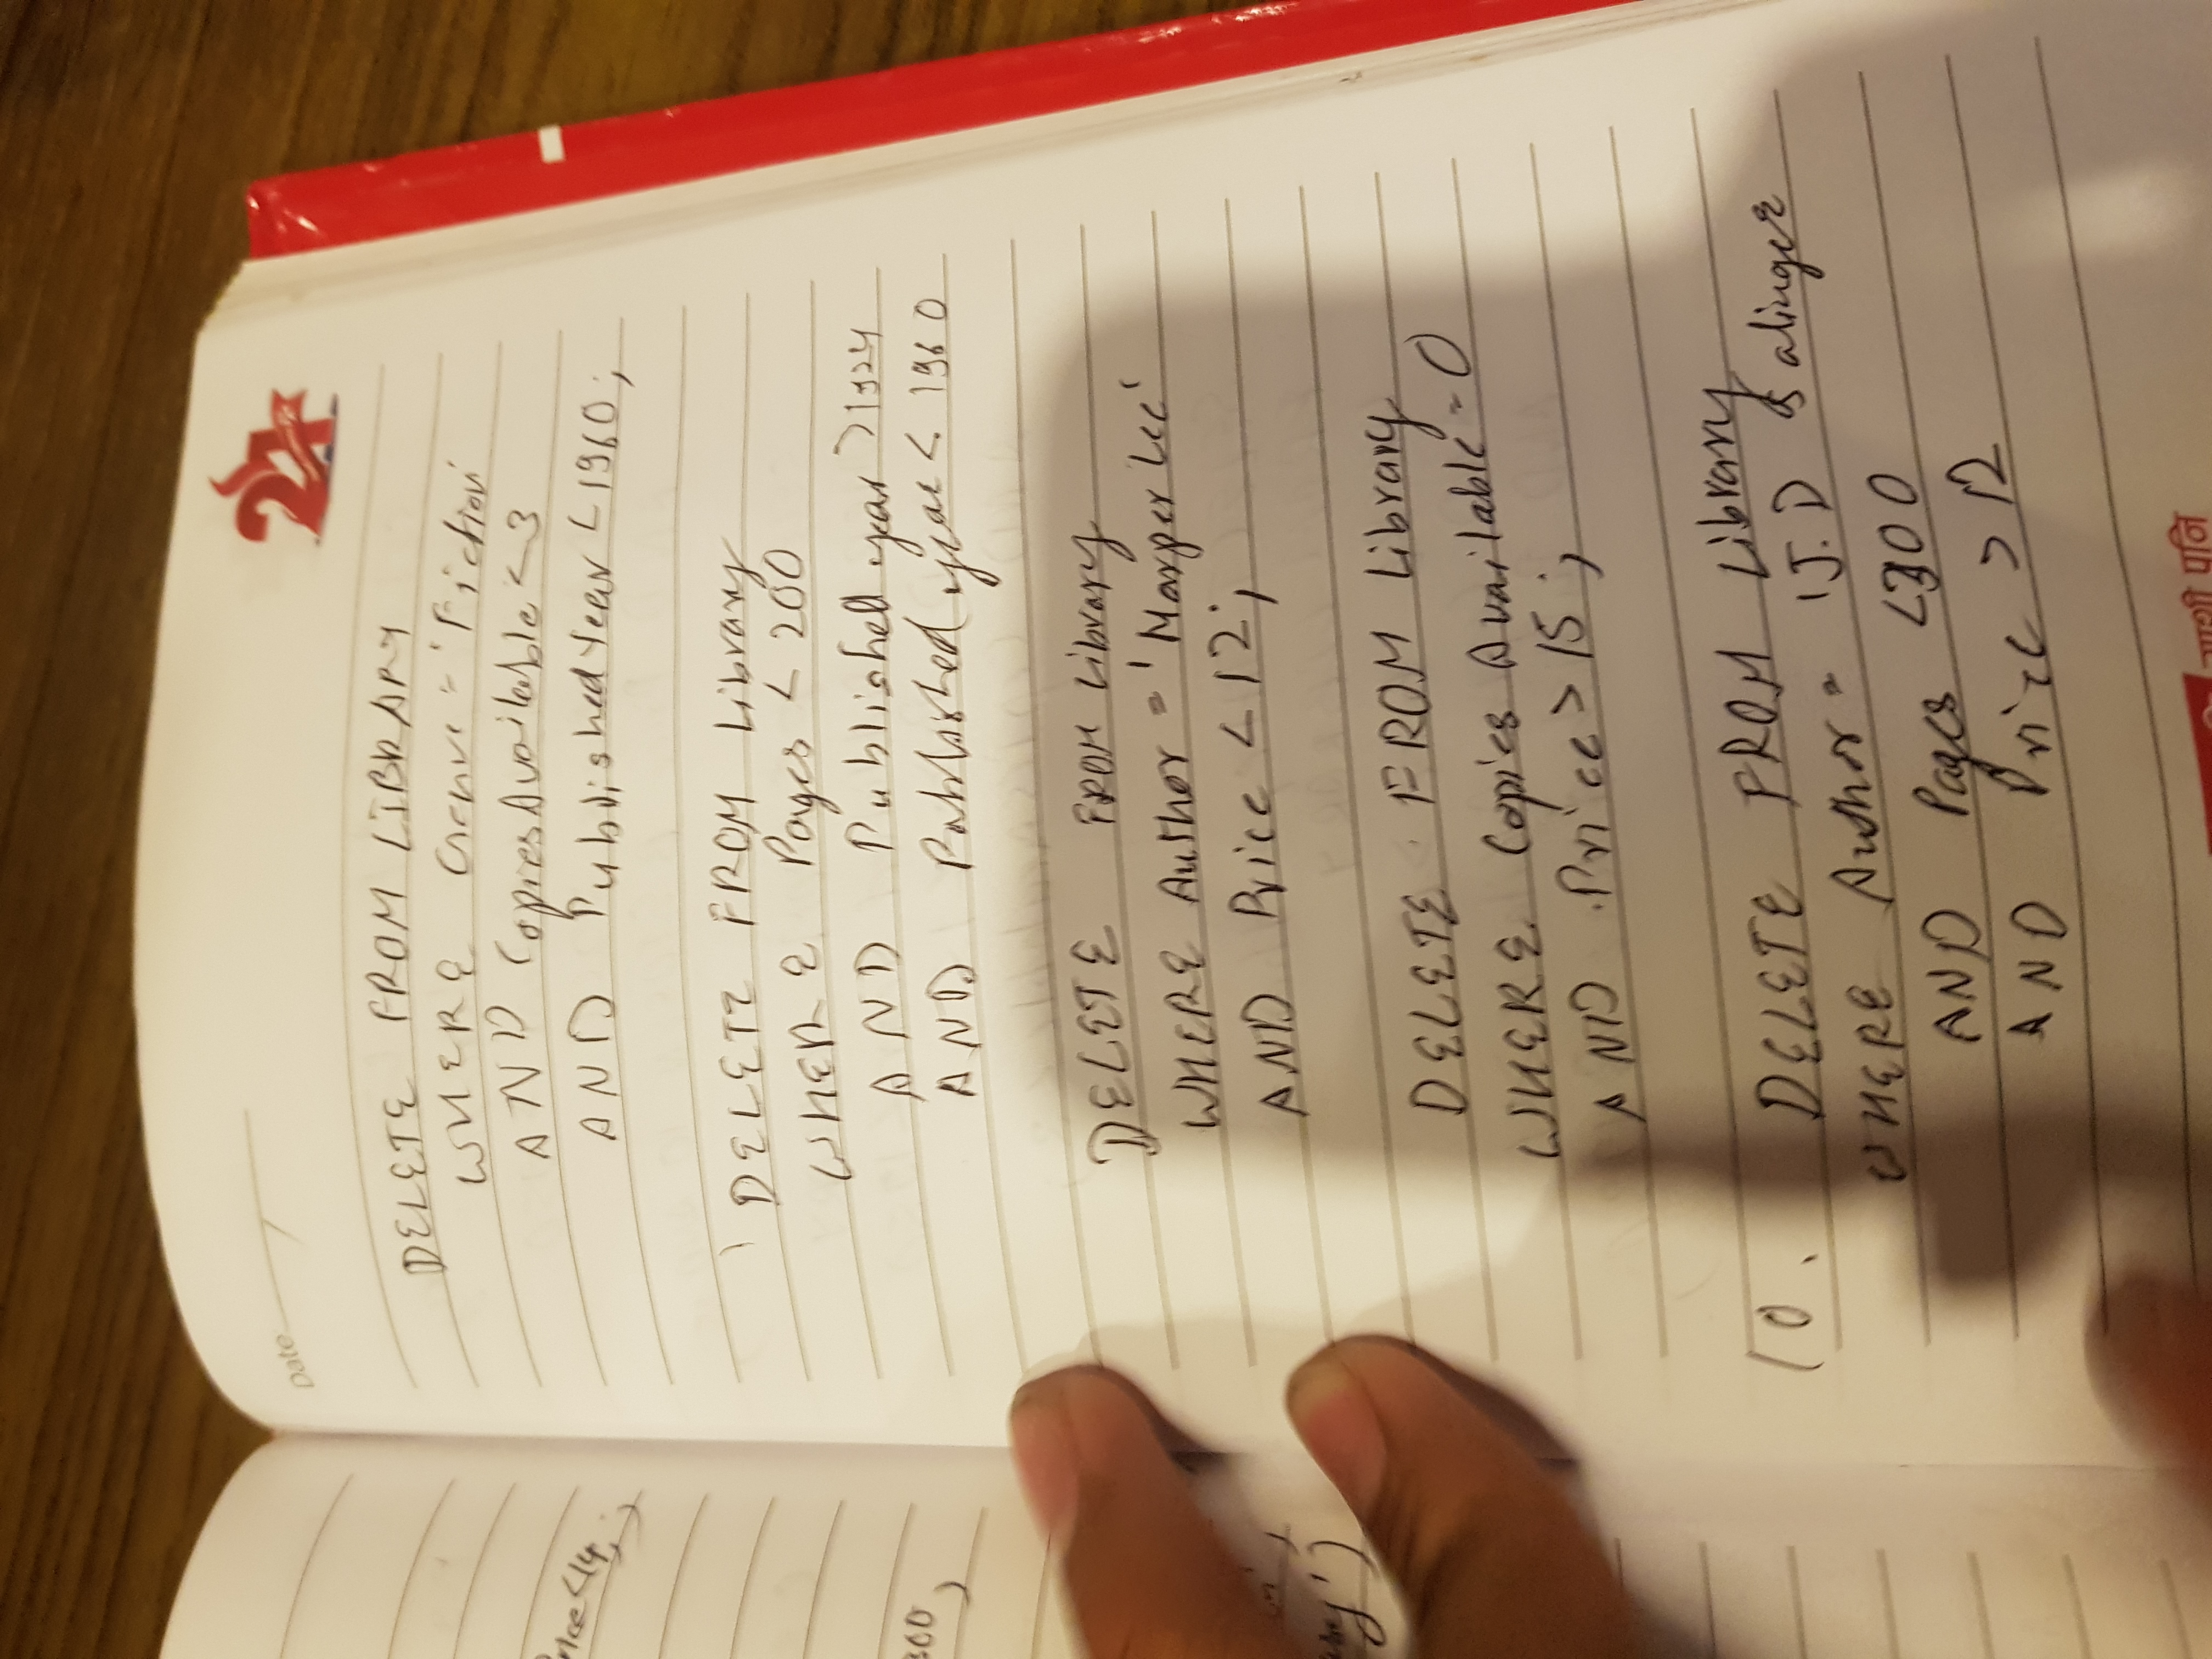 Date
24
DELETE FROM LIBRARY
WHERE Genre = 'Fiction'
AND CopiesAvailable < 3
AND PublishedYear < 1960;
DELETE FROM Library
WHERE Pages < 200
AND Published year > 1924
AND Published year < 1960
DELETE FROM Library
WHERE Author = 'Harper Lee'
AND Price < 12;
DELETE FROM Library
WHERE Copies Available = 0
AND Price > 15;
10. DELETE FROM Library
WHERE Author = 'J.D Salinger
AND Pages < 300
AND Price > 12
Price < 14;
300
पनि